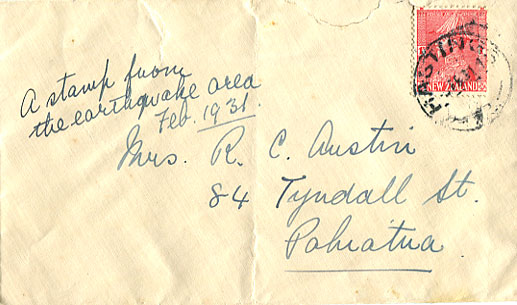 A stamp from
the earthquake area
Feb. 1931.
Mrs. R. C. Austin
84 Tyndall St.
Pahiatua
HASTINGS
NEW ZEALAND